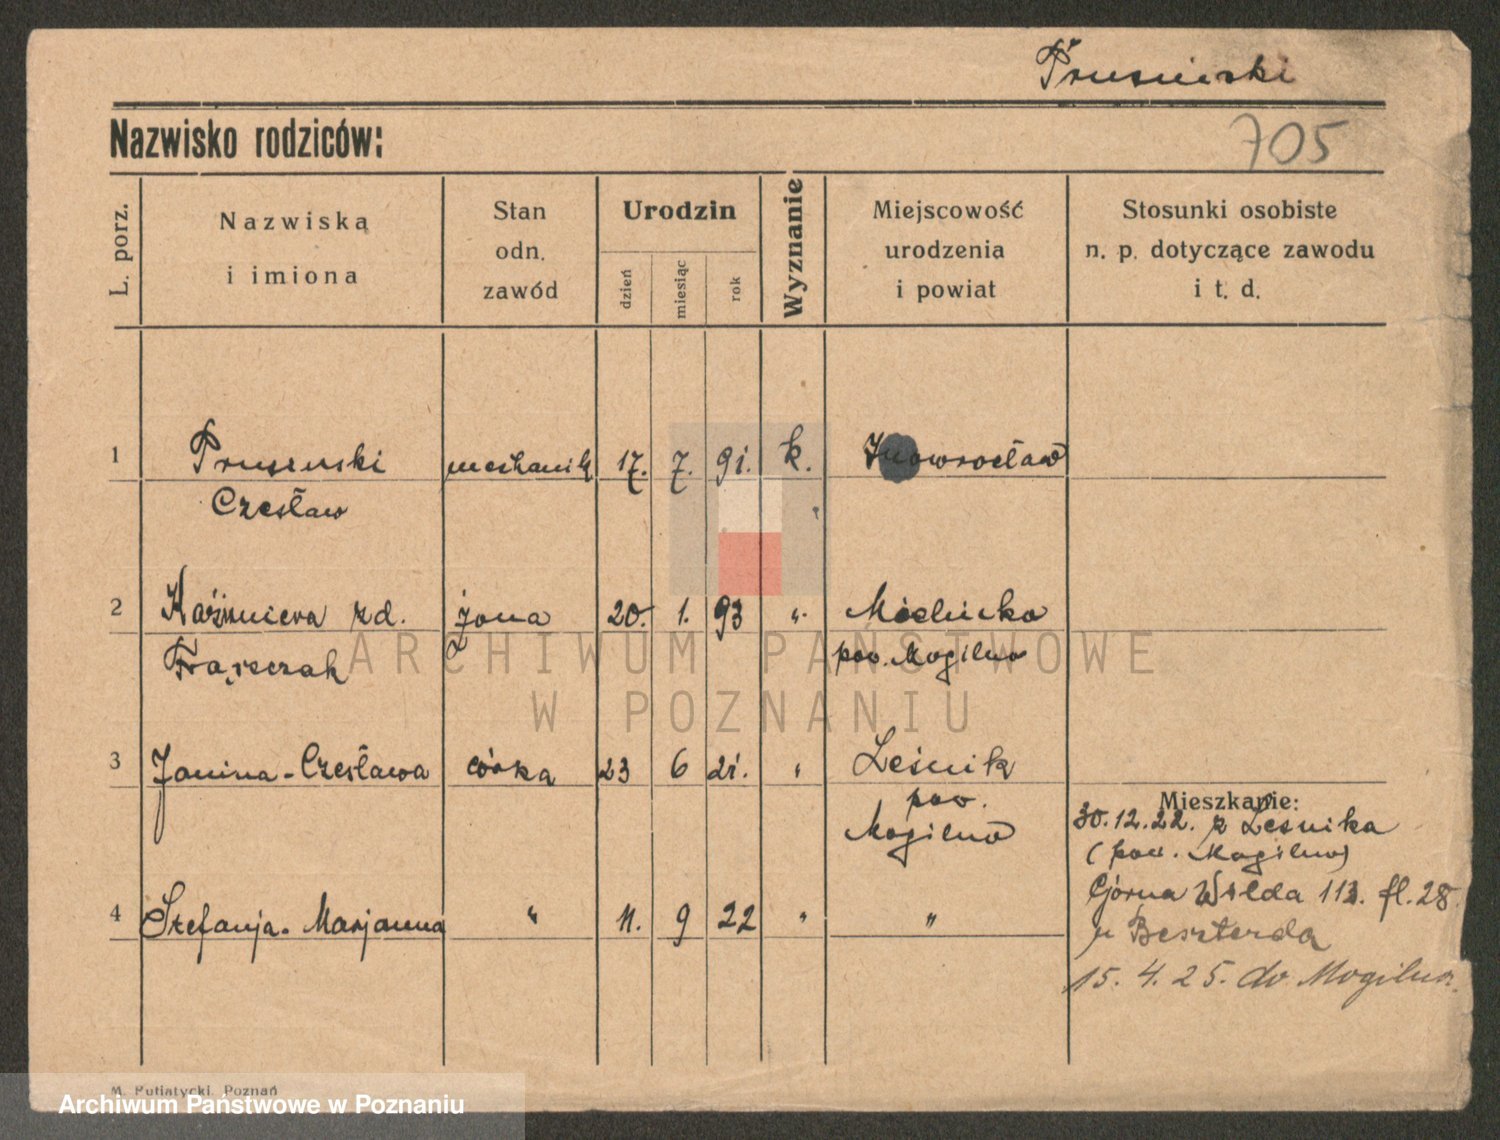 Prusinski
Nazwisko rodziców:
705
L. porz.
Nazwiska
i imiona
Stan
odn.
zawód
Urodzin
dzień
miesiąc
rok
Wyznanie
Miejscowość
urodzenia
i powiat
Stosunki osobiste
n. p. dotyczące zawodu
i t. d.
1 mechanik 17. 7. 91. k. Inowrocław
Czesław
2 Kaźmiera zd. żona 20. 1. 93 " Mielnicka
Frąszczak pow. Mogilno
3 Janina-Czesława córka 23 6 21. " Leśnik
pow.
Mogilno
Mieszkanie:
30.12.22. z Leśnika
(pow. Mogilno)
4 Stefanja-Marjanna " 11. 9 22 " "
Górna Wilda 113. fl. 28.
u Beszterda
15. 4. 25. do Mogilna.
M. Putiatycki, Poznań
ARCHIWUM PAŃSTWOWE
W POZNANIU
Archiwum Państwowe w Poznaniu